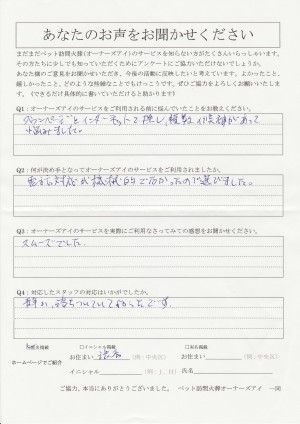 あなたのお声をお聞かせください
まだまだペット訪問火葬(オーナーズアイ)のサービスを知らない方がたくさんいらっしゃいます。
その方たちに少しでも知っていただくためにアンケートにご協力いただけないでしょうか。
あなた様のご意見をお聞かせいただき、今後の活動に反映したいと考えています。よかったこと、
嬉しかったこと、どのような些細なことでもけっこうです。ぜひご協力をよろしくお願いいたします。
(できるだけ具体的に書いていただけると助かります)
Q1:オーナーズアイのサービスをご利用される前に悩んでいたことをお教えください。
タウンページとインターネットで探し、複数、候補があって
悩みました。
Q2:何が決め手となってオーナーズアイのサービスをご利用されましたか。
電話対応が機械的でなかったので選びました。
Q3:オーナーズアイのサービスを実際にご利用なさってみての感想をお聞かせください。
スムーズでした。
Q4:対応したスタッフの対応はいかがでしたか。
静かに、落ちついていてよかったです。
ホームページでご紹介
□イニシャル掲載
お住まい (例:中央区)
イニシャル (例:J.H)
□実名掲載
お住まい (例:中央区)
氏名
ご協力、本当にありがとうございました。 ペット訪問火葬オーナーズアイ 一同